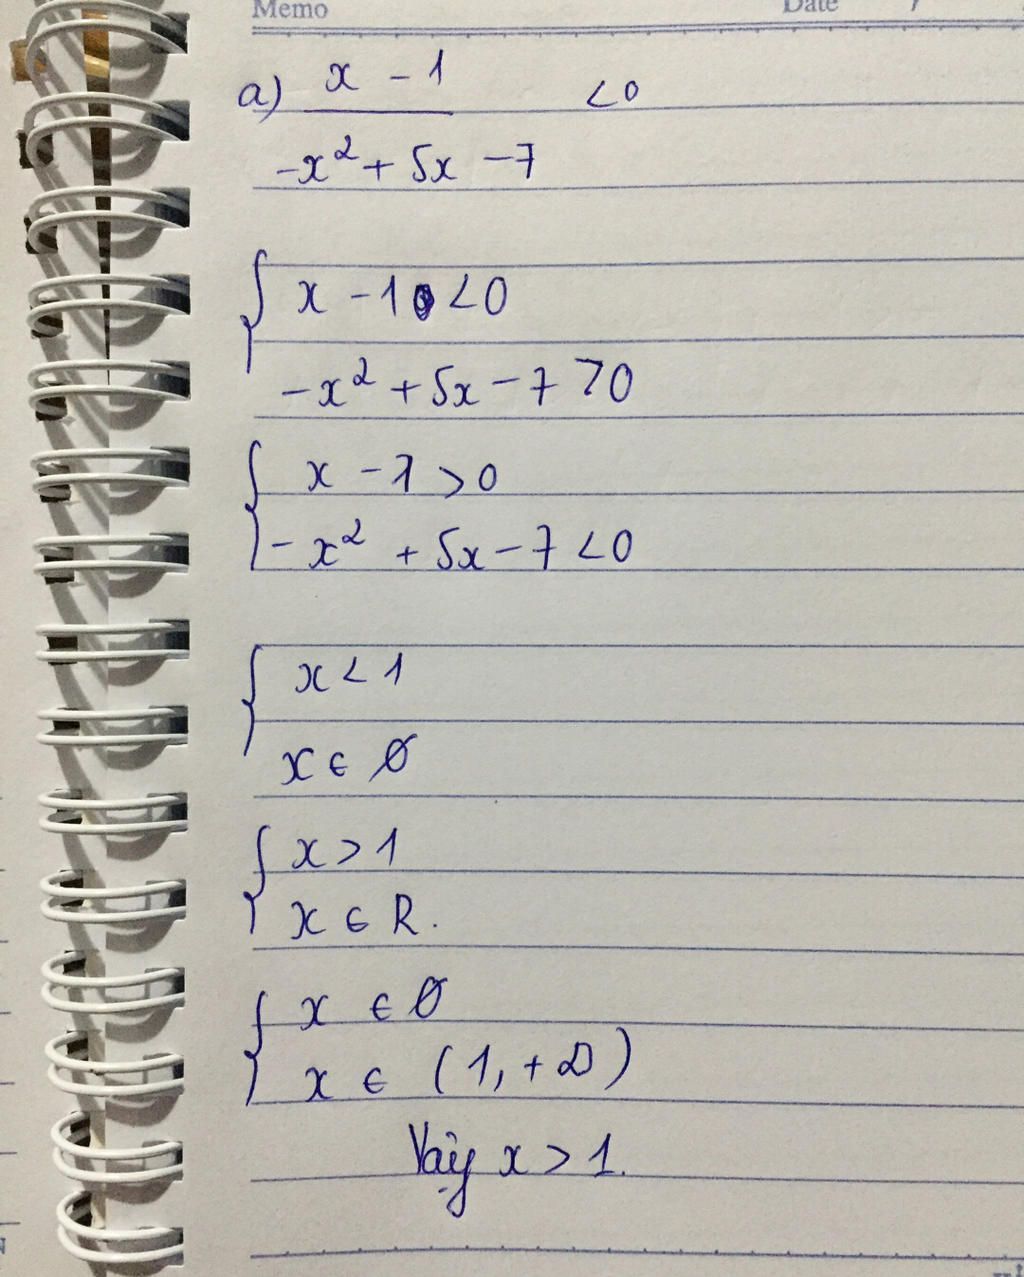 Memo Date /
a) x - 1 < 0
-x² + 5x - 7
{ x - 1 < 0
-x² + 5x - 7 > 0
{ x - 1 > 0
-x² + 5x - 7 < 0
{ x < 1
x ∈ ∅
{ x > 1
x ∈ R.
{ x ∈ ∅
x ∈ (1, +∞)
Vậy x > 1.